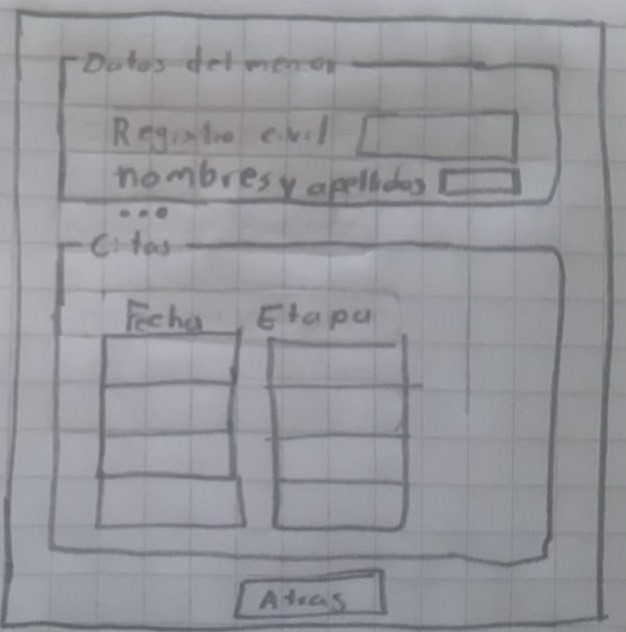 Datos del menor
Registro civil
nombres y apellidos
...
Citas
Fecha Etapa
Atras